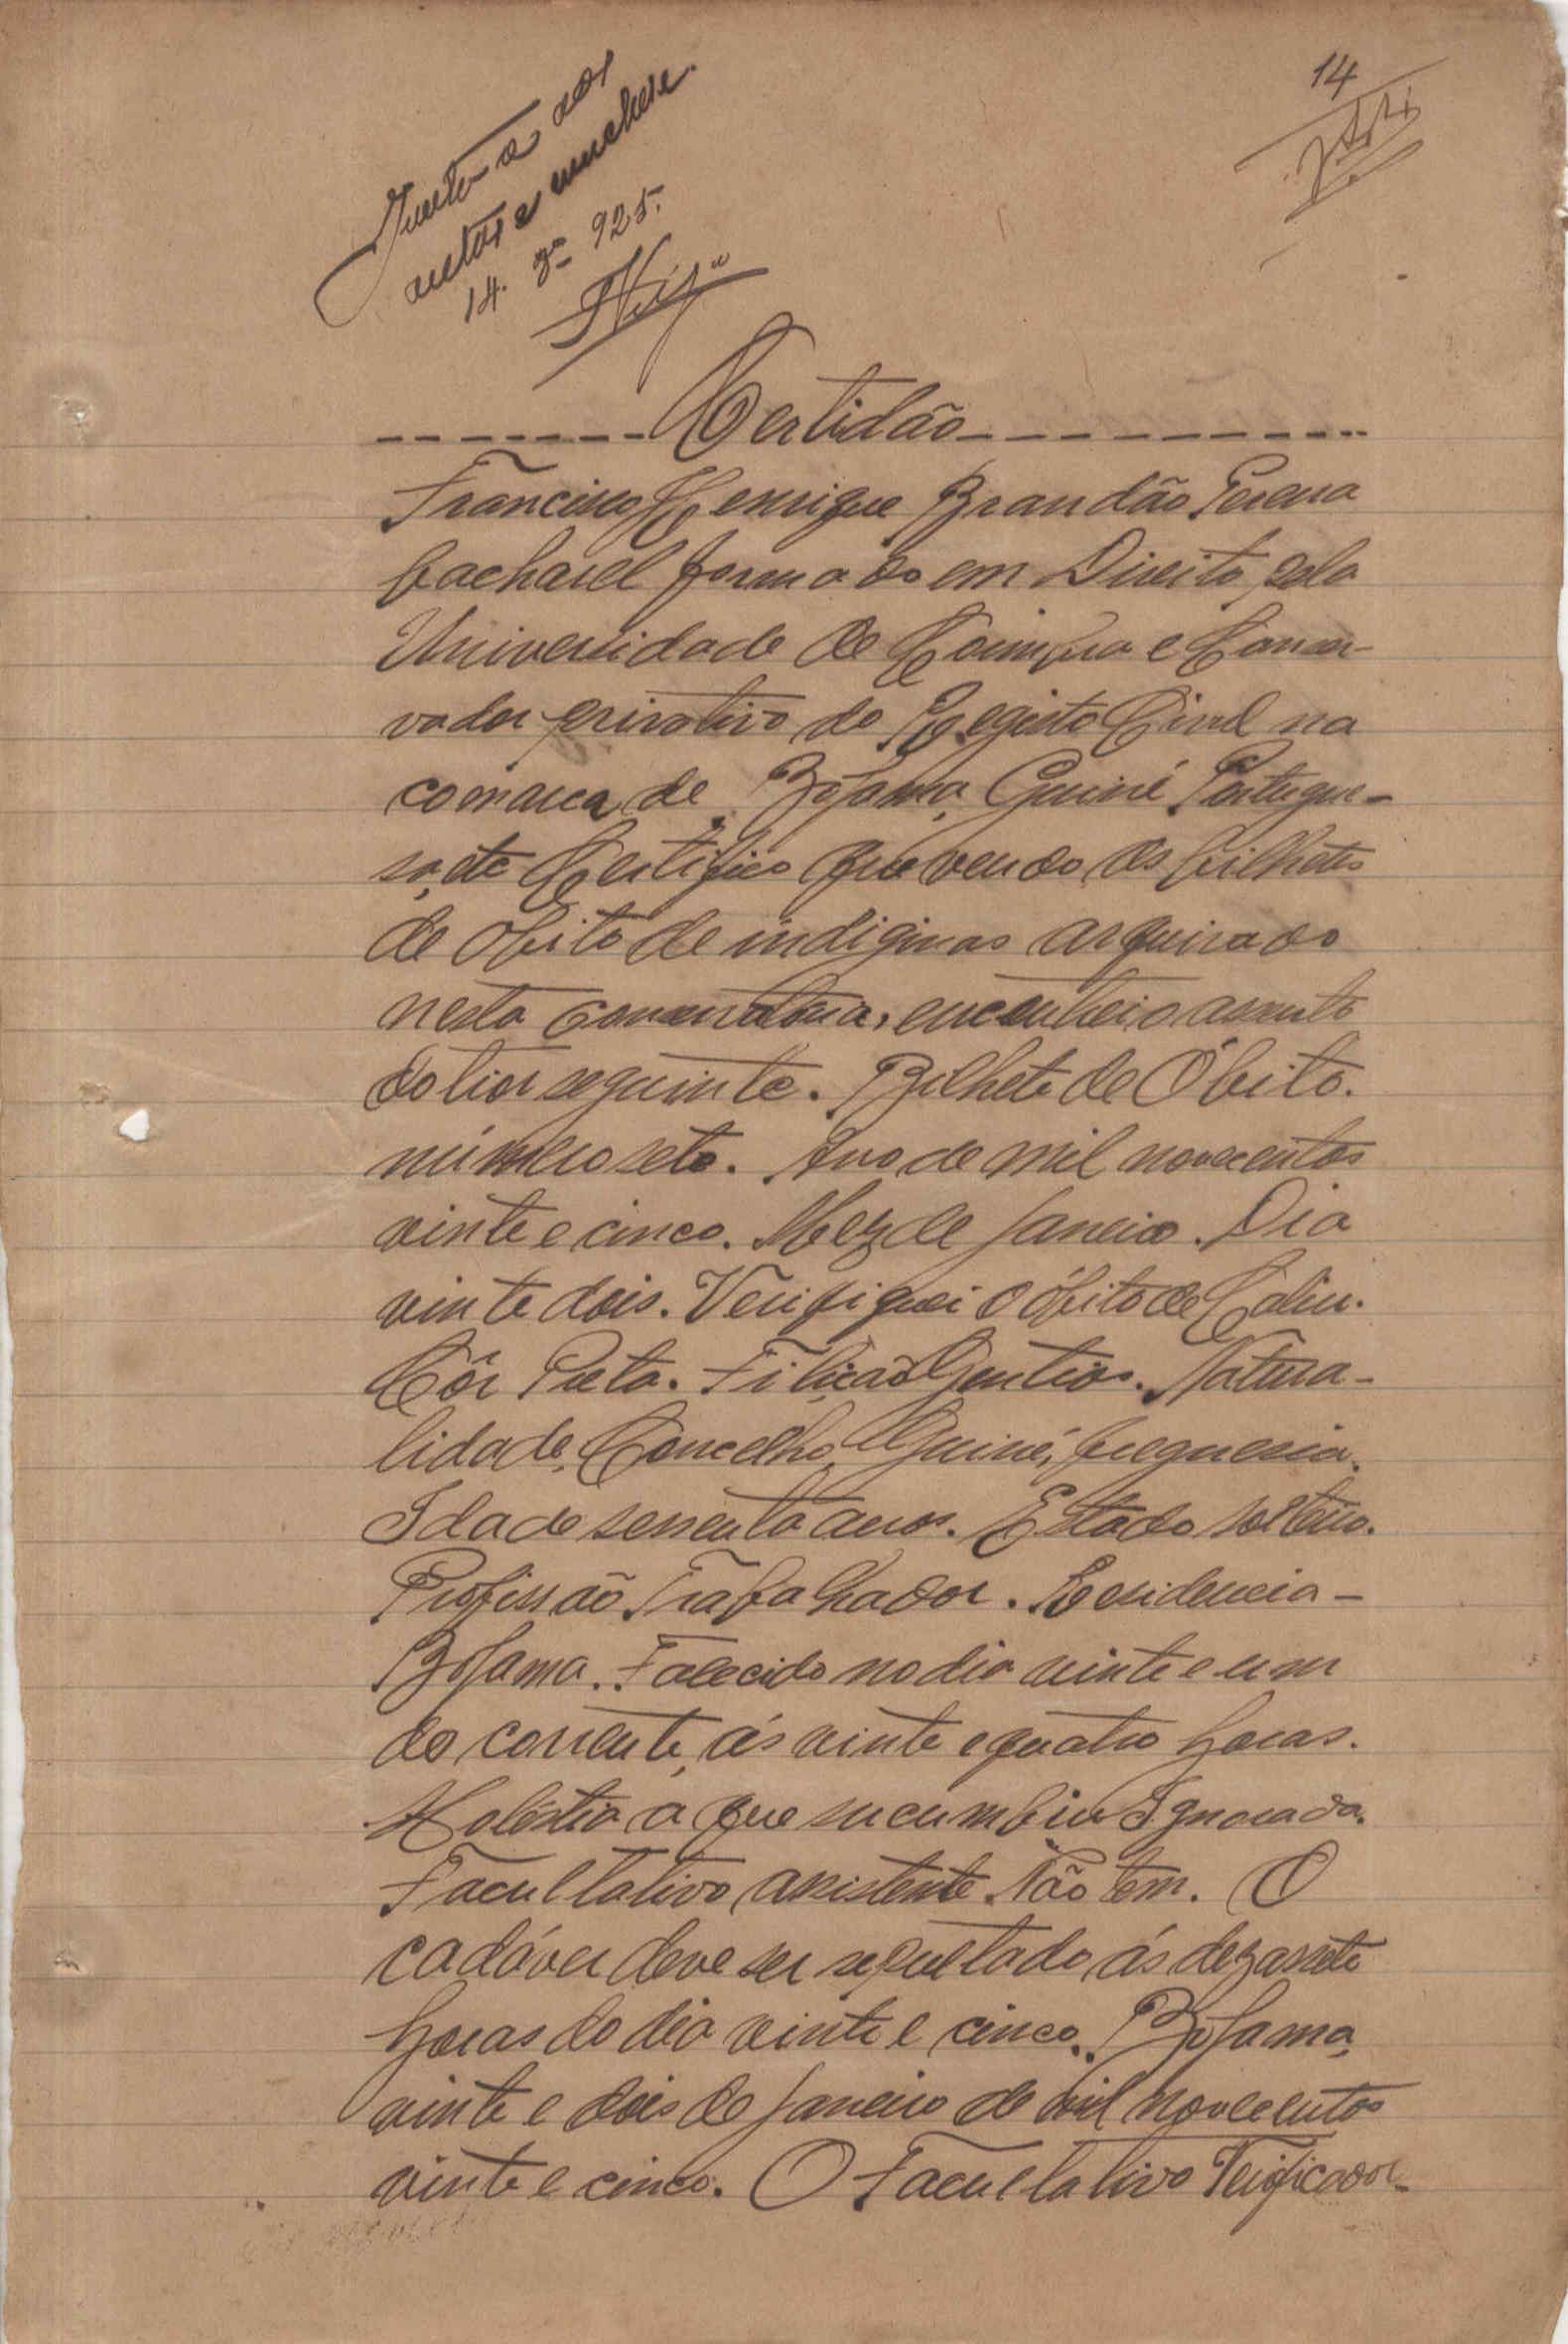 Junte a aos
autos e
14. 3º 925.
14
Certidão
Francisco Henrique Brandão Pereira
bacharel formado em Direito pela
Universidade de Coimbra e Conser-
vador privativo do Registo Civil na
comarca de Bolama, Guiné Portugue-
sa, etc Certifico que vendo os bilhetes
de obito de indiginas arquivado
nesta conservatoria, encontrei o assento
do teor seguinte. Bilhete de Óbito.
número sete. Ano de mil novecentos
vinte e cinco. Mez de Janeiro. Dia
vinte dois. Verifiquei o óbito de Caliu.
Côr Preta. Filiação Gentios. Natura-
lidade, Concelho, Guiné, freguesia.
Idade sessenta anos. Estado solteiro.
Profissão Trabalhador. Residencia -
Bolama. Falecido no dia vinte e um
do corrente, ás vinte e quatro horas.
Moléstia a que sucumbiu Ignorada.
Facultativo assistente Não tem. O
cadáver deve ser sepultado ás dezassete
horas do dia vinte e cinco. Bolama,
vinte e dois de Janeiro de mil novecentos
vinte e cinco. O Facultativo Verificador-